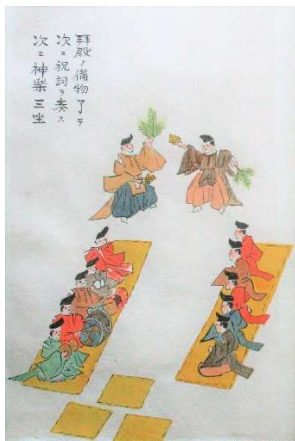 拜殿ノ備物了テ
次ニ祝詞ヲ奏ス
次ニ神楽三坐